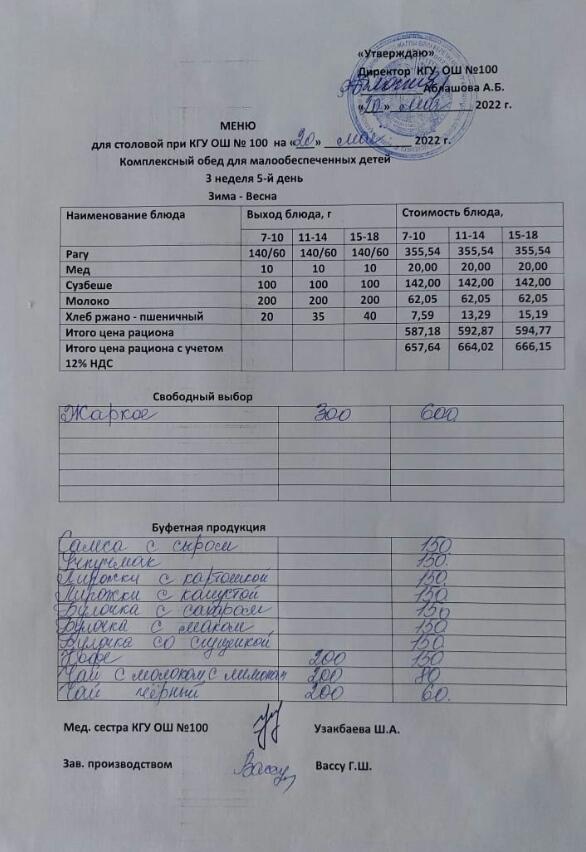 «Утверждаю»
Директор КГУ ОШ №100
Аблашова А.Б.
«20» мая 2022 г.
МЕНЮ
для столовой при КГУ ОШ № 100 на «20» мая 2022 г.
Комплексный обед для малообеспеченных детей
3 неделя 5-й день
Зима - Весна
Наименование блюда Выход блюда, г Стоимость блюда,
7-10 11-14 15-18 7-10 11-14 15-18
Рагу 140/60 140/60 140/60 355,54 355,54 355,54
Мед 10 10 10 20,00 20,00 20,00
Сузбеше 100 100 100 142,00 142,00 142,00
Молоко 200 200 200 62,05 62,05 62,05
Хлеб ржано - пшеничный 20 35 40 7,59 13,29 15,19
Итого цена рациона 587,18 592,87 594,77
Итого цена рациона с учетом 657,64 664,02 666,15
12% НДС
Свободный выбор
Жаркое 300 600
Буфетная продукция
Самса с сыром 150
Учпучмак 150
Пирожки с картошкой 150
Пирожки с капустой 150
Булочка с сахаром 150
Булочка с маком 150
Булочка со сгущенкой 150
Кофе 200 150
Чай с молоком с лимоном 200 80
Чай чёрный 200 60
Мед. сестра КГУ ОШ №100 Узакбаева Ш.А.
Зав. производством Вассу Вассу Г.Ш.